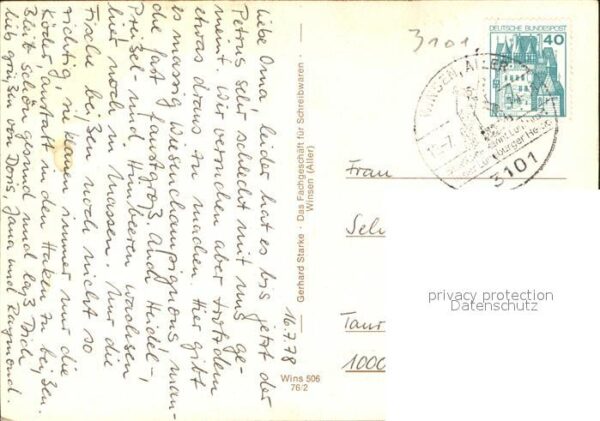 3101
DEUTSCHE BUNDESPOST
40
WINSEN (ALLER)
3101
16.7.78
Liebe Oma, leider hat es bis jetzt der
Petrus sehr schlecht mit uns ge-
meint. Wir versuchen aber trotzdem
etwas draus zu machen. Hier gibt
es massig Wiesenchampignons man-
che fast faustgroß. Auch Heidel-,
Preisel- und Himbeeren wachsen
hier noch in Massen. Nur die
Fische beißen noch nicht so
richtig, sie kauen immer nur die
Köder, anstatt in den Haken zu beißen.
Bleib schön gesund und laß Dich
lieb grüßen von Doris, Jana und Raymond.
Gerhard Starke · Das Fachgeschäft für Schreibwaren ·
Winsen (Aller)
Wins 506
76/2
Frau
Sel
Taur
1000
privacy protection
Datenschutz